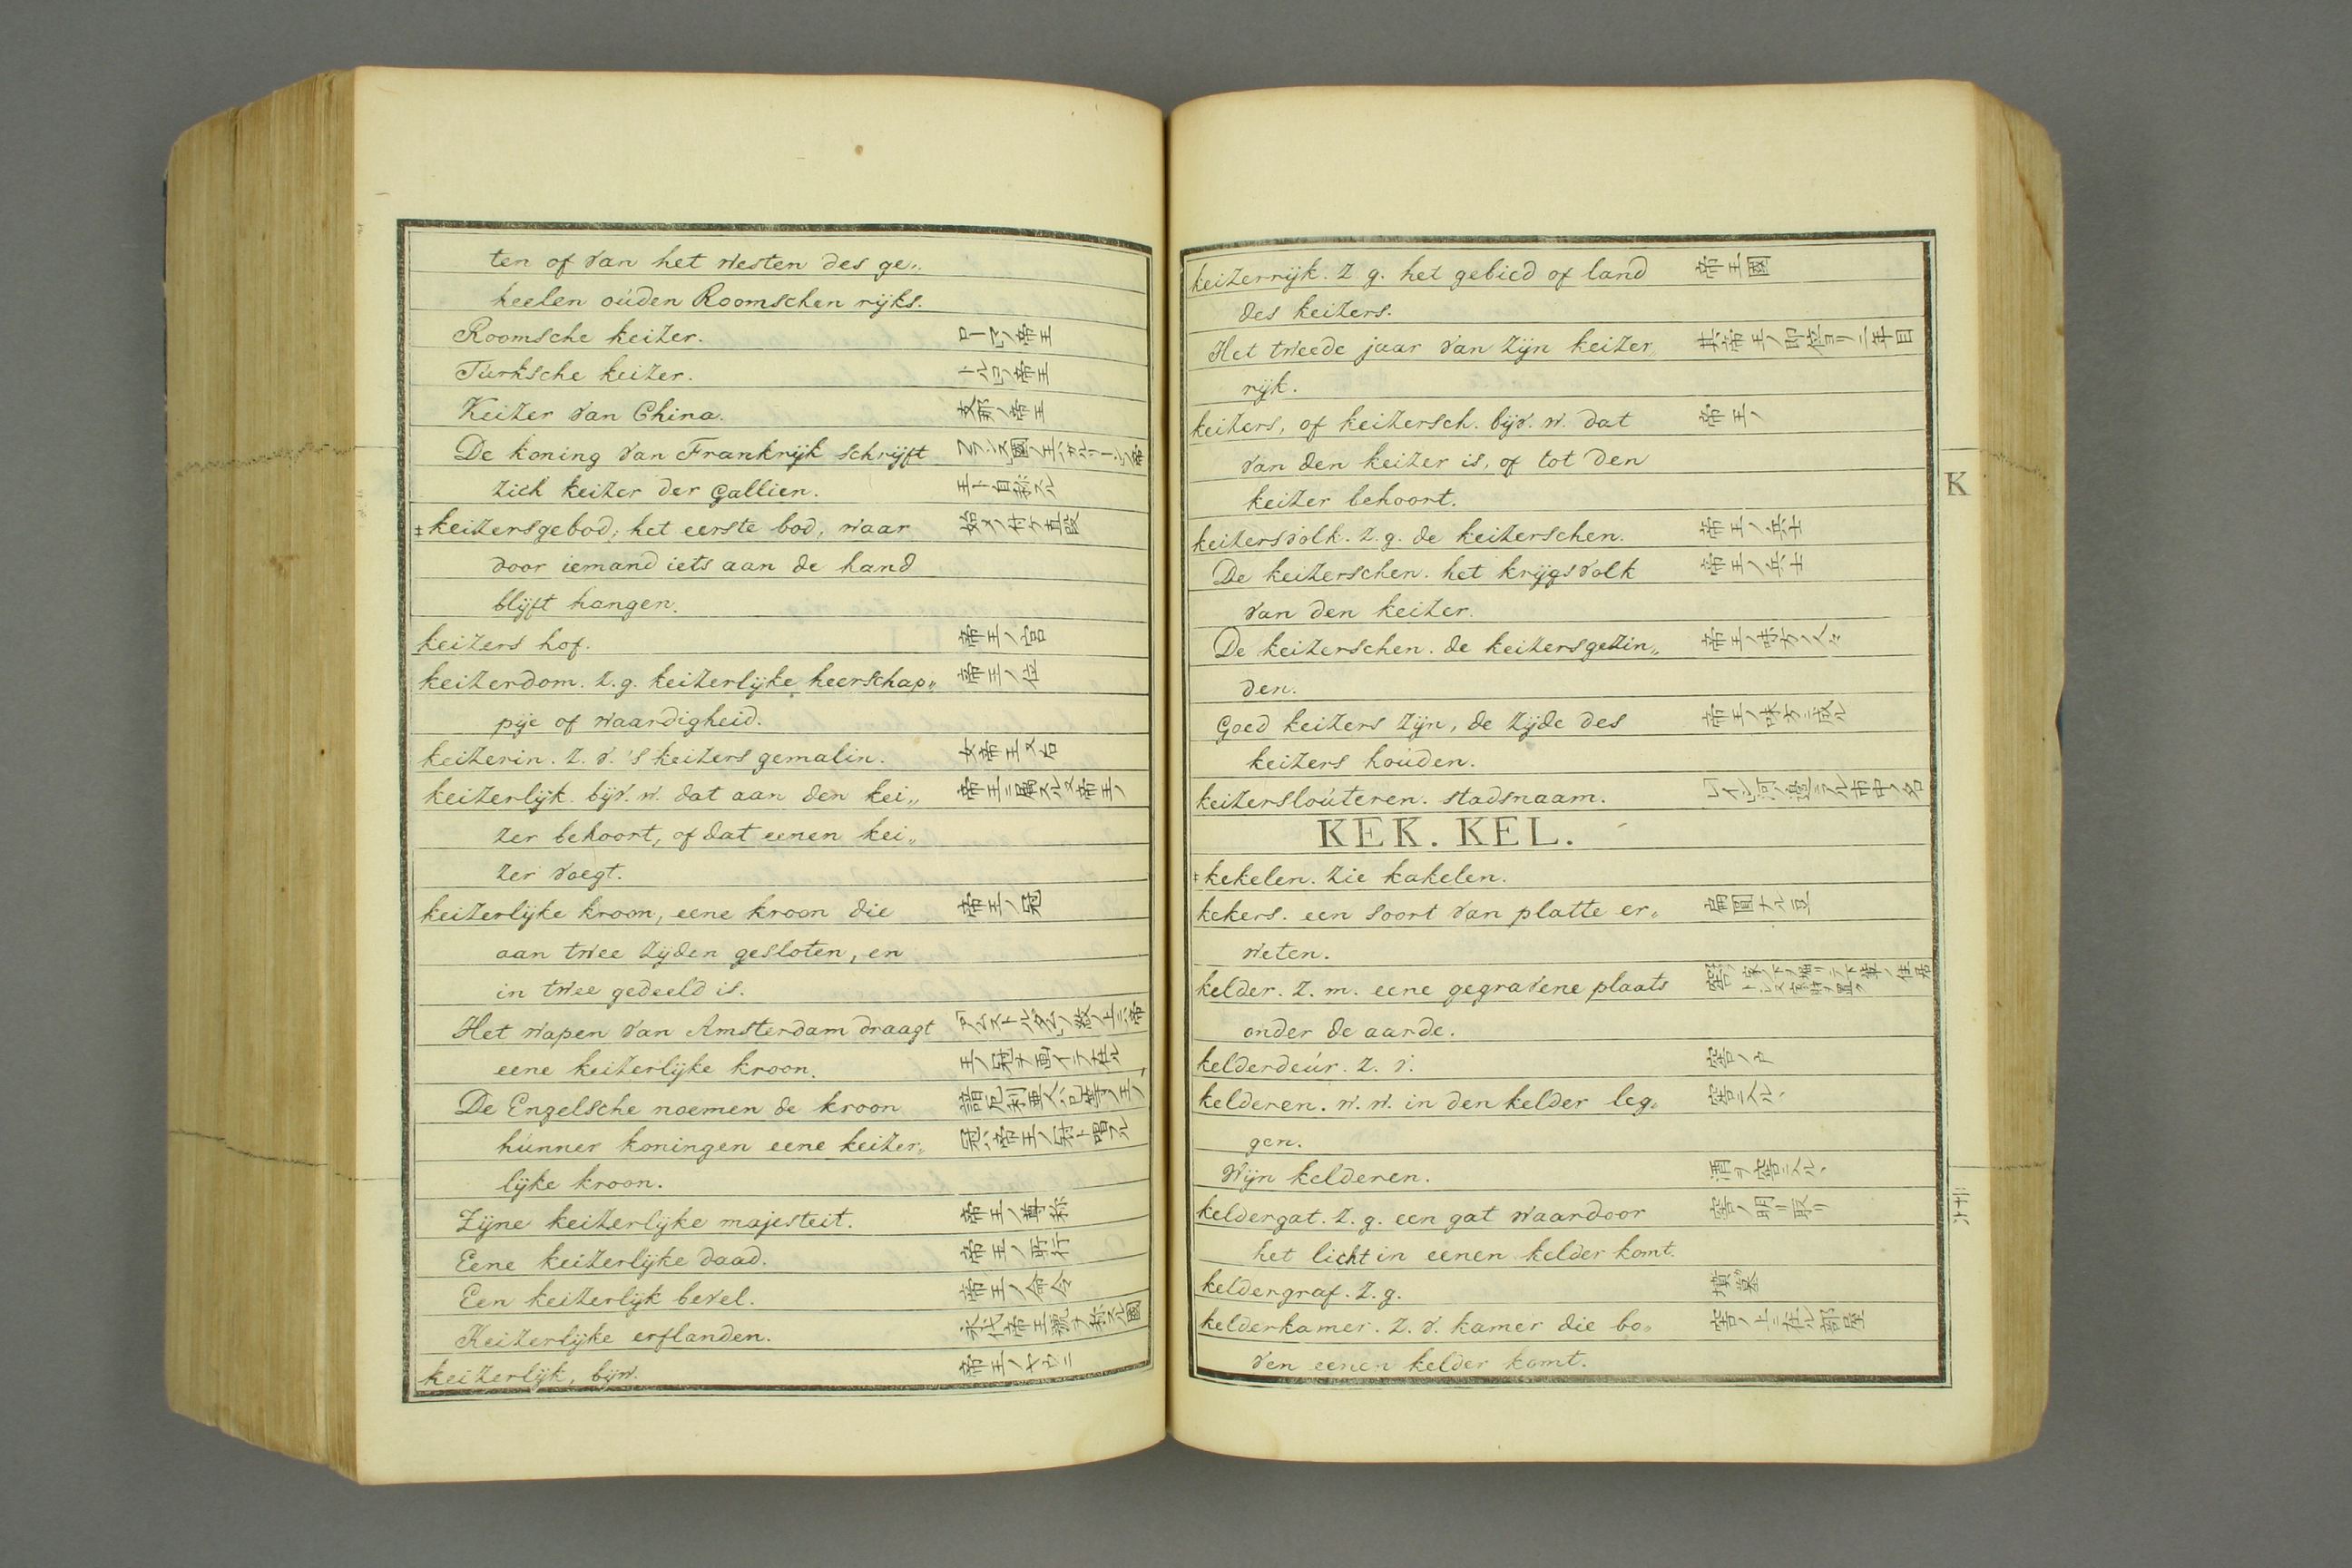 ten of van het westen des ge„
heelen oúden Roomschen rijks.
Roomsche keizer. ローマノ帝王
Túrksche keizer. トルコノ帝王
Keizer van China. 支那ノ帝王
De koning van Frankrijk schrijft
zich keizer der Gallien. 王ト自称スル
‡keizersgebod; het eerste bod, waar 始メノ付ケ直段
door iemand iets aan de hand
blijft hangen.
keizers hof. 帝王ノ宮
keizerdom. z.g. keizerlijke heerschap„ 帝王ノ位
pije of waardigheid.
keizerin. z. v. 's keizers gemalin. 女帝王又后
keizerlijk. bijv. w. dat aan den kei„ 帝王ニ属スル又帝王ノ
zer behoort, of dat eenen kei„
zer voegt.
keizerlijke kroon, eene kroon die 帝王ノ冠
aan twee zijden gesloten, en
in twee gedeeld is.
Het wapen van Amsterdam draagt
eene keizerlijke kroon. 王ノ冠ヲ画イテ在ル
De Engelsche noemen de kroon
húnner koningen eene keizer„ 冠ハ帝王ノ冠ト唱フル
lijke kroon.
Zijne keizerlijke majesteit. 帝王ノ尊称
Eene keizerlijke daad. 帝王ノ所行
Een keizerlijk bevel. 帝王ノ命令
Keizerlijke erflanden. 永代帝王號ヲ称スル國
keizerlijk, bijw. 帝王ノヤウニ
keizerrijk. z. g. het gebied of land 帝王國
des keizers.
Het tweede jaar van zijn keizer„ 其帝王ノ即位ヨリ二年目
rijk.
keizers, of keizersch. bijv. w. dat 帝王ノ
van den keizer is, of tot den
keizer behoort.
keizersvolk. z. g. de keizerschen. 帝王ノ兵士
De keizerschen. het krijgsvolk 帝王ノ兵士
van den keizer.
De keizerschen. de keizersgezin„ 帝王ノ味方ノ人々
den.
Goed keizers zijn, de zijde des 帝王ノ味方ニ成ル
keizers hoúden.
keizersloúteren. stadsnaam.
KEK. KEL.
‡kekelen. zie kakelen.
kekers. een soort van platte er„
weten.
kelder. z. m. eene gegravene plaats
onder de aarde.
kelderdeúr. z. v. 窖ノ戸
kelderen. w. w. in den kelder leg„ 窖ニ入ル、
gen.
Wijn kelderen. 酒ヲ窖ニ入ル、
keldergat. z. g. een gat waardoor 窖ノ明リ取リ
het licht in eenen kelder komt.
keldergraf. z. g. 墳墓
kelderkamer. z. v. kamer die bo„ 窖ノ上ニ在ル部屋
ven eenen kelder komt.
K